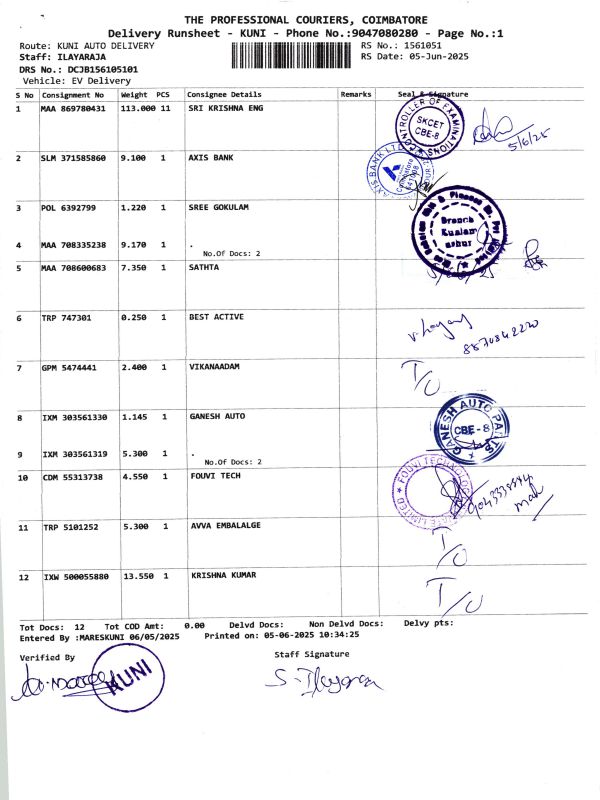 THE PROFESSIONAL COURIERS, COIMBATORE
Delivery Runsheet - KUNI - Phone No.:9047080280 - Page No.:1
Route: KUNI AUTO DELIVERY RS No.: 1561051
Staff: ILAYARAJA RS Date: 05-Jun-2025
DRS No.: DCJB156105101
Vehicle: EV Delivery
S No Consignment No Weight PCS Consignee Details Remarks Seal & Signature
1 MAA 869780431 113.000 11 SRI KRISHNA ENG
CONTROLLER OF EXAMINATIONS
SKCET
CBE-8
5/6/25
2 SLM 371585860 9.100 1 AXIS BANK
AXIS BANK LTD
Coimbatore
3 POL 6392799 1.220 1 SREE GOKULAM
Branch
4 MAA 708335238 9.170 1 .
No.Of Docs: 2
5 MAA 708600683 7.350 1 SATHTA
6 TRP 747301 0.250 1 BEST ACTIVE
7 GPM 5474441 2.400 1 VIKANAADAM
T/O
8 IXM 303561330 1.145 1 GANESH AUTO
GANESH AUTO PARTS
CBE-8
9 IXM 303561319 5.300 1 .
No.Of Docs: 2
10 CDM 55313738 4.550 1 FOUVI TECH
11 TRP 5101252 5.300 1 AVVA EMBALALGE
T/O
12 IXW 500055880 13.550 1 KRISHNA KUMAR
T/O
Tot Docs: 12 Tot COD Amt: 0.00 Delvd Docs: Non Delvd Docs: Delvy pts:
Entered By :MARESKUNI 06/05/2025 Printed on: 05-06-2025 10:34:25
Verified By Staff Signature
KUNI